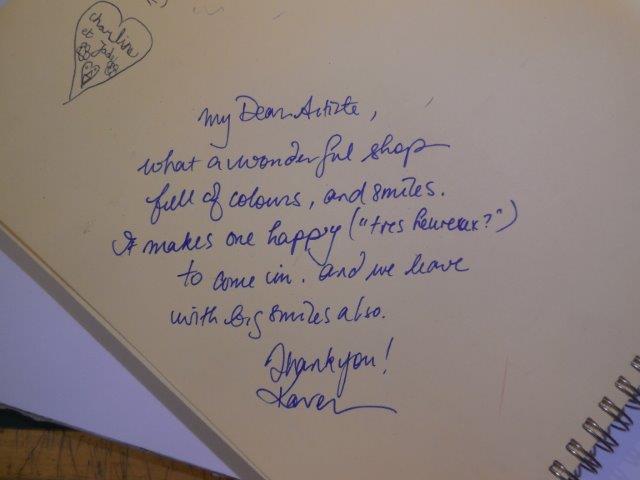 charline
et
Jade
My Dear Artiste,
what a wonderful shop
full of colours, and smiles.
It makes one happy ("tres heureux?")
to come in. and we leave
with big smiles also.
Thank you!
Karen